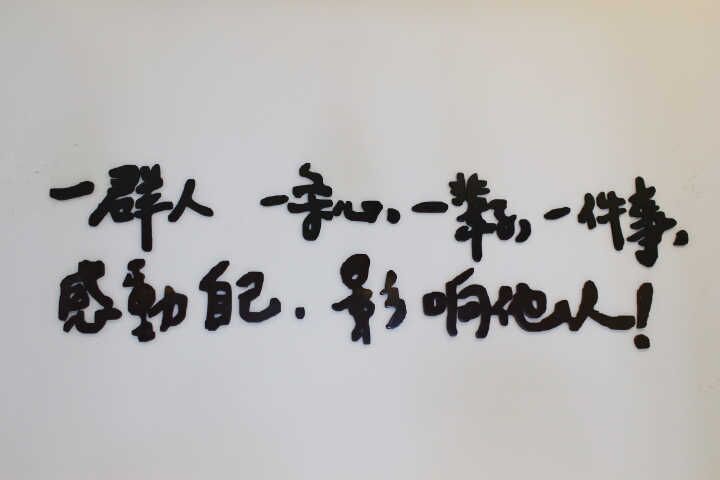 一群人 一条心,一辈子,一件事,
感動自己.影响他人!